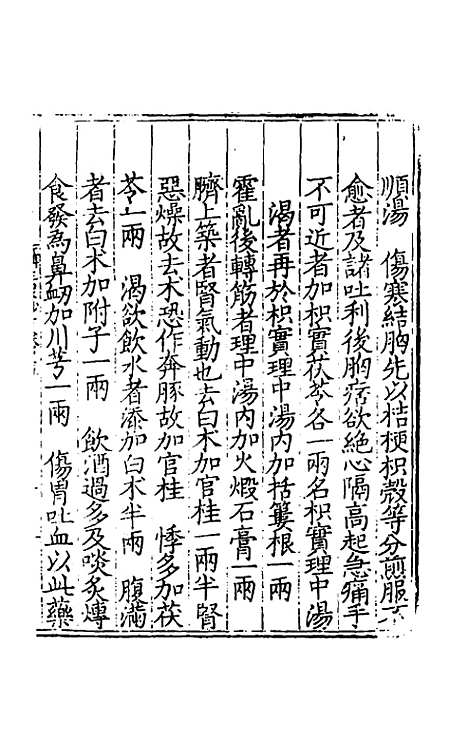 順湯　傷寒結胸先以桔梗枳殼等分煎服不
愈者及諸吐利後胸痞欲絶心隔高起急痛手
不可近者加枳實茯苓各一兩名枳實理中湯
渴者再於枳實理中湯內加括蔞根一兩
霍亂後轉筋者理中湯內加火煅石膏一兩
臍上築者腎氣動也去白术加官桂一兩半腎
惡燥故去术恐作奔豚故加官桂　悸多加茯
苓一兩　渴欲飲水者添加白术半兩　腹滿
者去白术加附子一兩　飲酒過多及啖炙煿
食發為鼻衂加川芎一兩　傷胃吐血以此藥